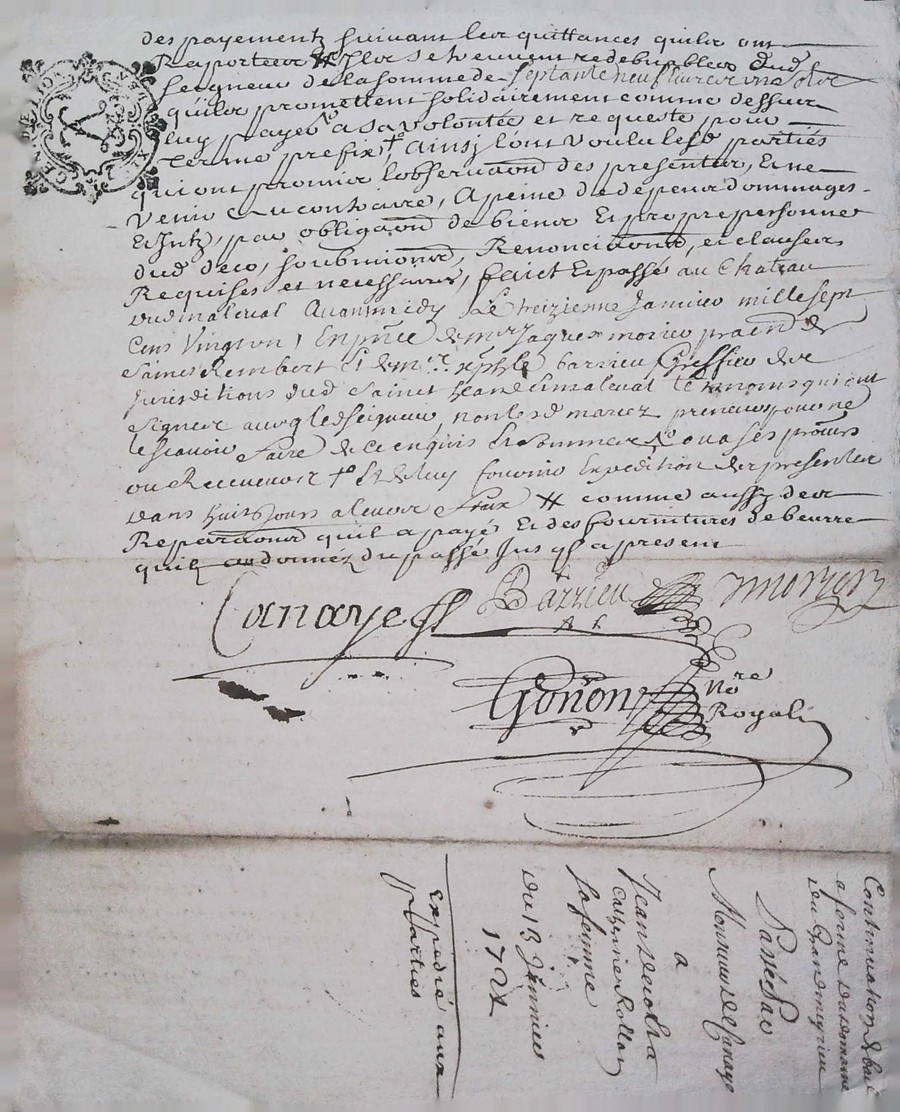 des payements suivant les quittances quils ont
Raporteer # Iller se treuvent redebvables aud
seigneur de la somme de septante neuf livres une sols
quils promettent solidairement comme dessus
luy payer a sa volontée et requeste pour
terme prefix † ainsi lont voulu lesd parties
qui ont promis lobservaon des presentes, Et ne
venir au contraire, A peine de dépens dommages
Et Intz, par obligaon de biens Et propre personne
dud deco, soubmions, Renonciaons, et clauses
Requises et necessaires, faict Et passé au Chateau
dud maleval avant midy Le treizienne Janvier mille sept
cens vingt un, En pnce de mre Jaques morier praen de
Saint Rembert Et de mr. barrieu Greffier des
Jurisditions dud Saint Jean de maleval temoins qui ont
signés avec led seigneur, non lesd mariez preneurs pour ne
le scavoir faire de ce enquis Et sommes
ou Recevevoir † Et de luy fournir Expedition des presentes
dans huit Jours a leurs fraix # comme aussy des
Reparaons quil a payés Et des fournitures de beurre
quil a données du passé Jusqs a present
Canaye Barrieu morier
Gonon Nore
Royal
Continuation de bail
a ferme du domaine
du Grand meyrieu
Passé par
Monsieur de Canaye
a
Jean decolra
Catherine Rollon
sa femme
du 13 Janvier
1721
Expedié aux
parties